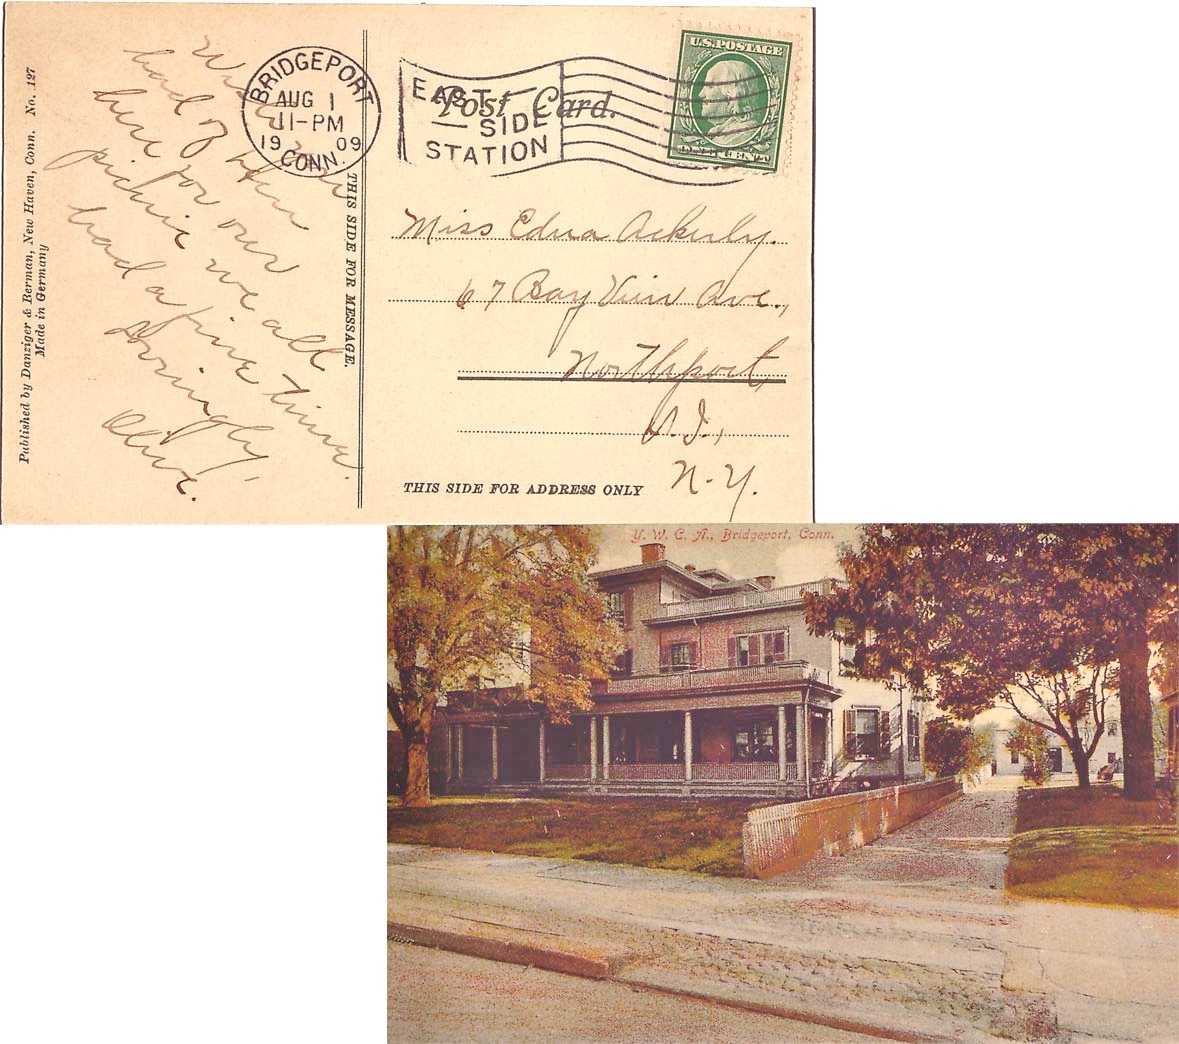 BRIDGEPORT
AUG 1
11-PM
19 09
CONN.
EAST
SIDE
STATION
Post Card.
U.S. POSTAGE
ONE CENT
had of
here for our
picnic we all
had a fine time.
Lovingly,
Olive.
THIS SIDE FOR MESSAGE.
Published by Danziger & Berman, New Haven, Conn. No. 127
Made in Germany
Miss Edna Ackerly.
67 Bay View Ave.,
Northport,
L.I.,
N.Y.
THIS SIDE FOR ADDRESS ONLY
Y. W. C. A., Bridgeport, Conn.